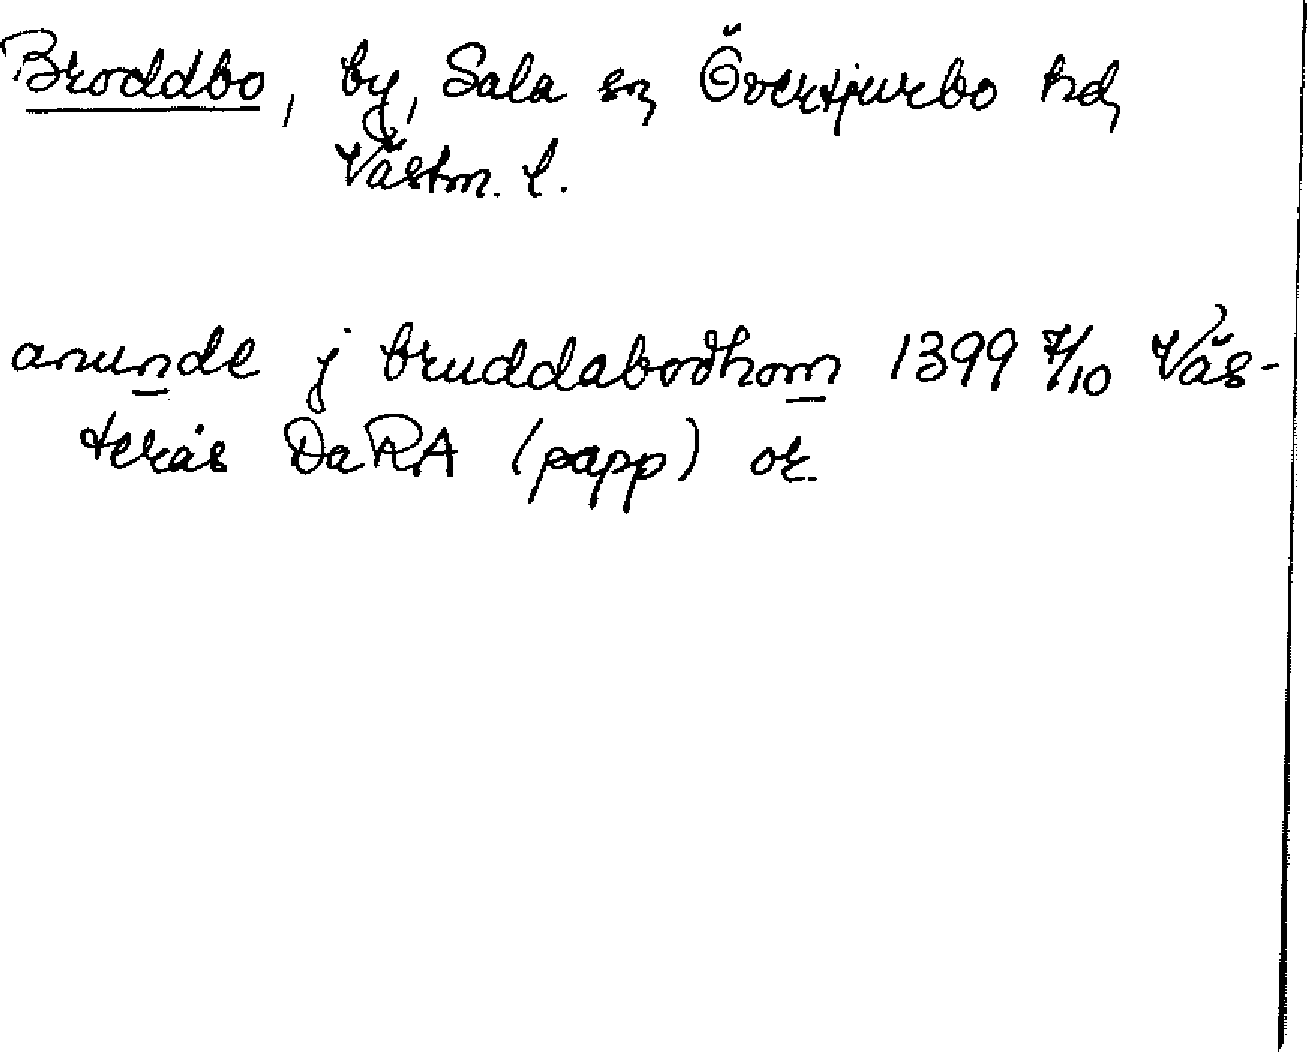 Broddbo, by, Sala sn, Övertjurbo hd,
Västm. l.
anunde j bruddabodhom 1399 7/10 Väs-
terås DaRA (papp) or.